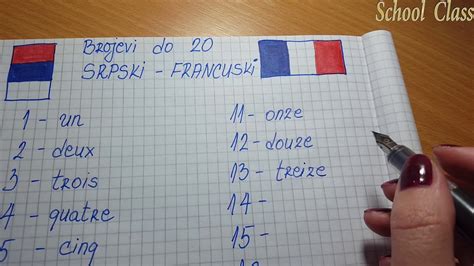 School Class
Brojevi do 20
SRPSKi - FRANCUSKi
1 - un
2 - deux
3 - trois
4 - quatre
5 - cinq
11 - onze
12 - douze
13 - treize
14 -
15 -